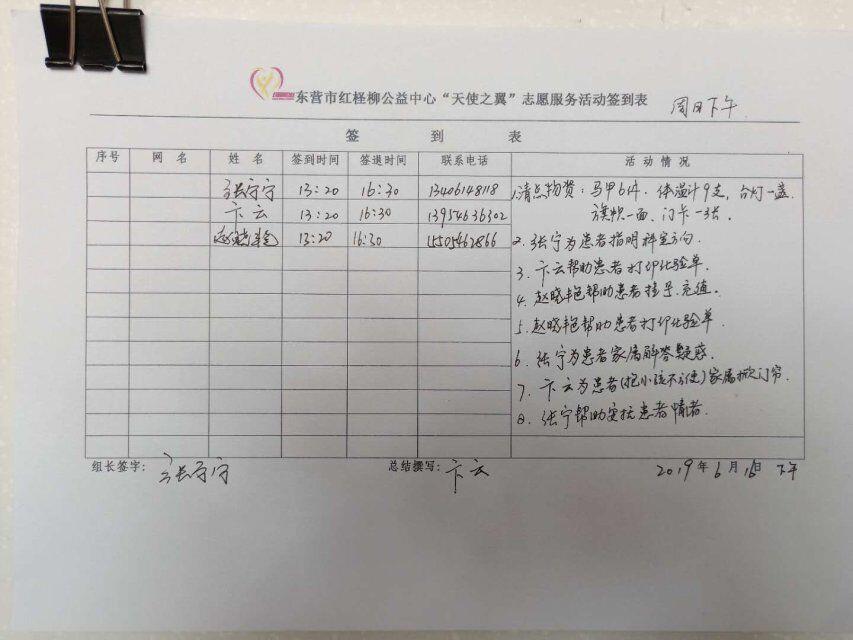 东营市红柽柳公益中心“天使之翼”志愿服务活动签到表 周日下午
签 到 表
序号 网 名 姓 名 签到时间 签退时间 联系电话 活 动 情 况
张宁宁 13:20 16:30 13406148118 1.清点物资：马甲6件．体温计9支，台灯一盏．
卞云 13:20 16:30 13954636302 旗帜一面、门卡一张。
赵晓艳 13:20 16:30 1505462866 2. 张宁为患者指明科室方向．
3. 卞云帮助患者打印化验单．
4. 赵晓艳帮助患者挂号、充值。
5. 赵晓艳帮助患者打印化验单．
6. 张宁为患者家属解答疑惑．
7. 卞云为患者(抱小孩不方便)家属掀门帘．
8. 张宁帮助安抚患者情绪．
组长签字： 张宁宁 总结撰写： 卞云 2019年6月16日 下午